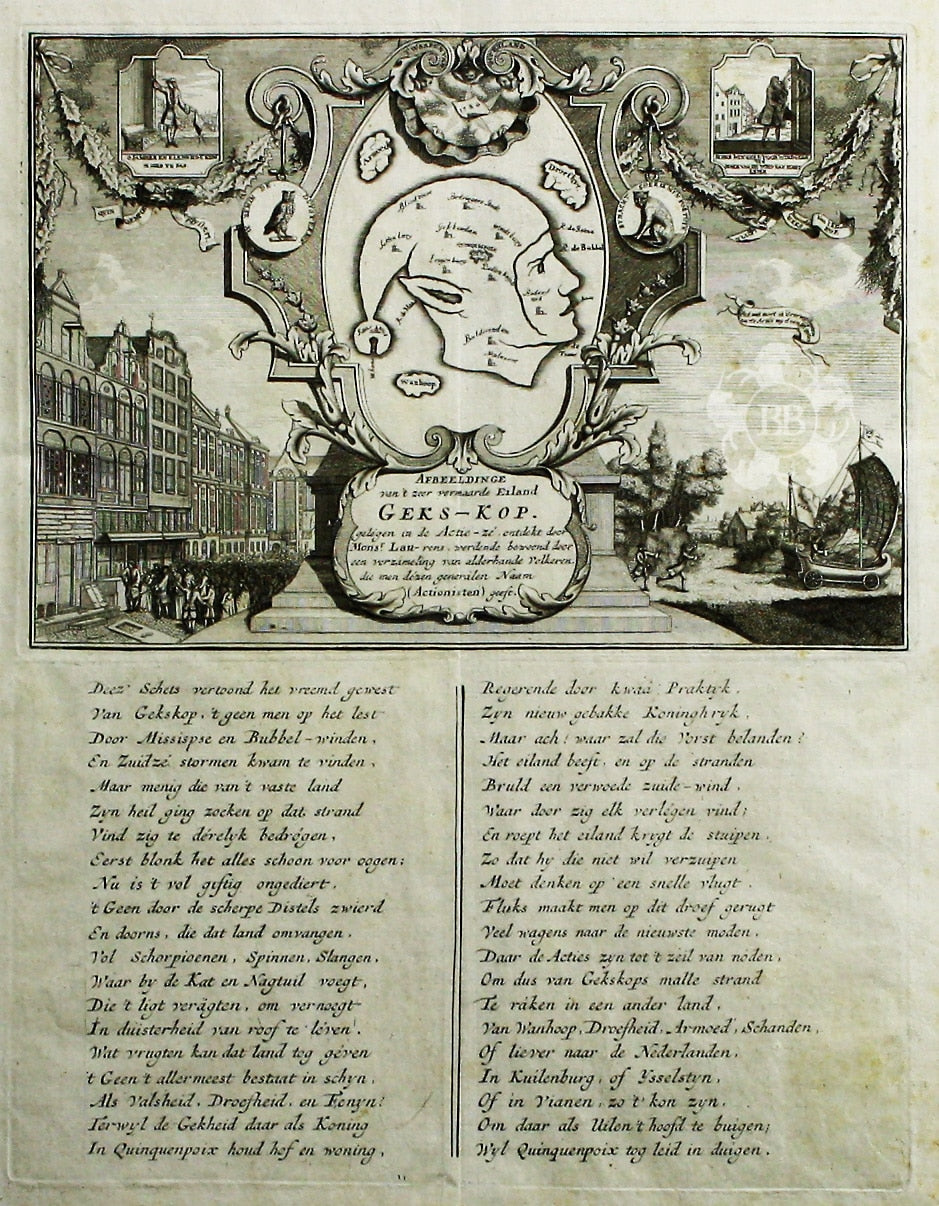 Armoed
Droefheyd
R. de Seine
R. de Bubbel
Wanhoop
BB
AFBEELDINGE
van't zeer vermaarde Eiland
GEKS-KOP.
gelegen in de Actie-zé, ontdekt door
Monsr. Lau-rens, werdende bewoond door
een verzameling van alderhande Volkeren,
die men dézen generalen Naam
(Actionisten) geeft.
Deez' Schets vertoond het vreemd gewest
Van Gekskop, 't geen men op het lest
Door Missispse en Bubbel-winden,
En Zuidzé stormen kwam te vinden,
Maar menig die van't vaste land
Zyn heil ging zoeken op dat strand
Vind zig te dérelyk bedrógen,
Eerst blonk het alles schoon voor oogen;
Nu is 't vol giftig ongediert,
't Geen door de scherpe Distels zwierd
En doorns, die dat land omvangen,
Vol Schorpioenen, Spinnen, Slangen,
Waar by de Kat en Nagtuil voegt,
Die 't ligt verágten, om vernoegt
In duisterheid van roof te léven.
Wat vrugten kan dat land tog géven
't Geen 't allermeest bestaat in schyn,
Als Valsheid, Droefheid, en Fenyn?
Terwyl de Gekheid daar als Koning
In Quinquenpoix houd hof en woning,
Regerende door kwaá Praktyk,
Zyn nieuw gebakke Koninghryk,
Maar ach! waar zal die Vorst belanden?
Het eiland beeft, en op de stranden
Bruld een verwoede zuide-wind,
Waar door zig elk verlégen vind;
En roept het eiland krygt de stuipen,
Zo dat hy die niet wil verzuipen
Moet denken op een snelle vlugt.
Fluks maakt men op dit droef gerugt
Veel wagens naar de nieuwste moden,
Daar de Acties zyn tot 't zeil van noden,
Om dus van Gekskops malle strand
Te ráken in een ander land,
Van Wanhoop, Droefheid, Armoed, Schanden,
Of liever naar de Nederlanden,
In Kuilenburg, of Ysselstyn,
Of in Vianen, zo 't kon zyn,
Om daar als Uilen 't hoofd te buigen;
Wyl Quinquenpoix tog leid in duigen.